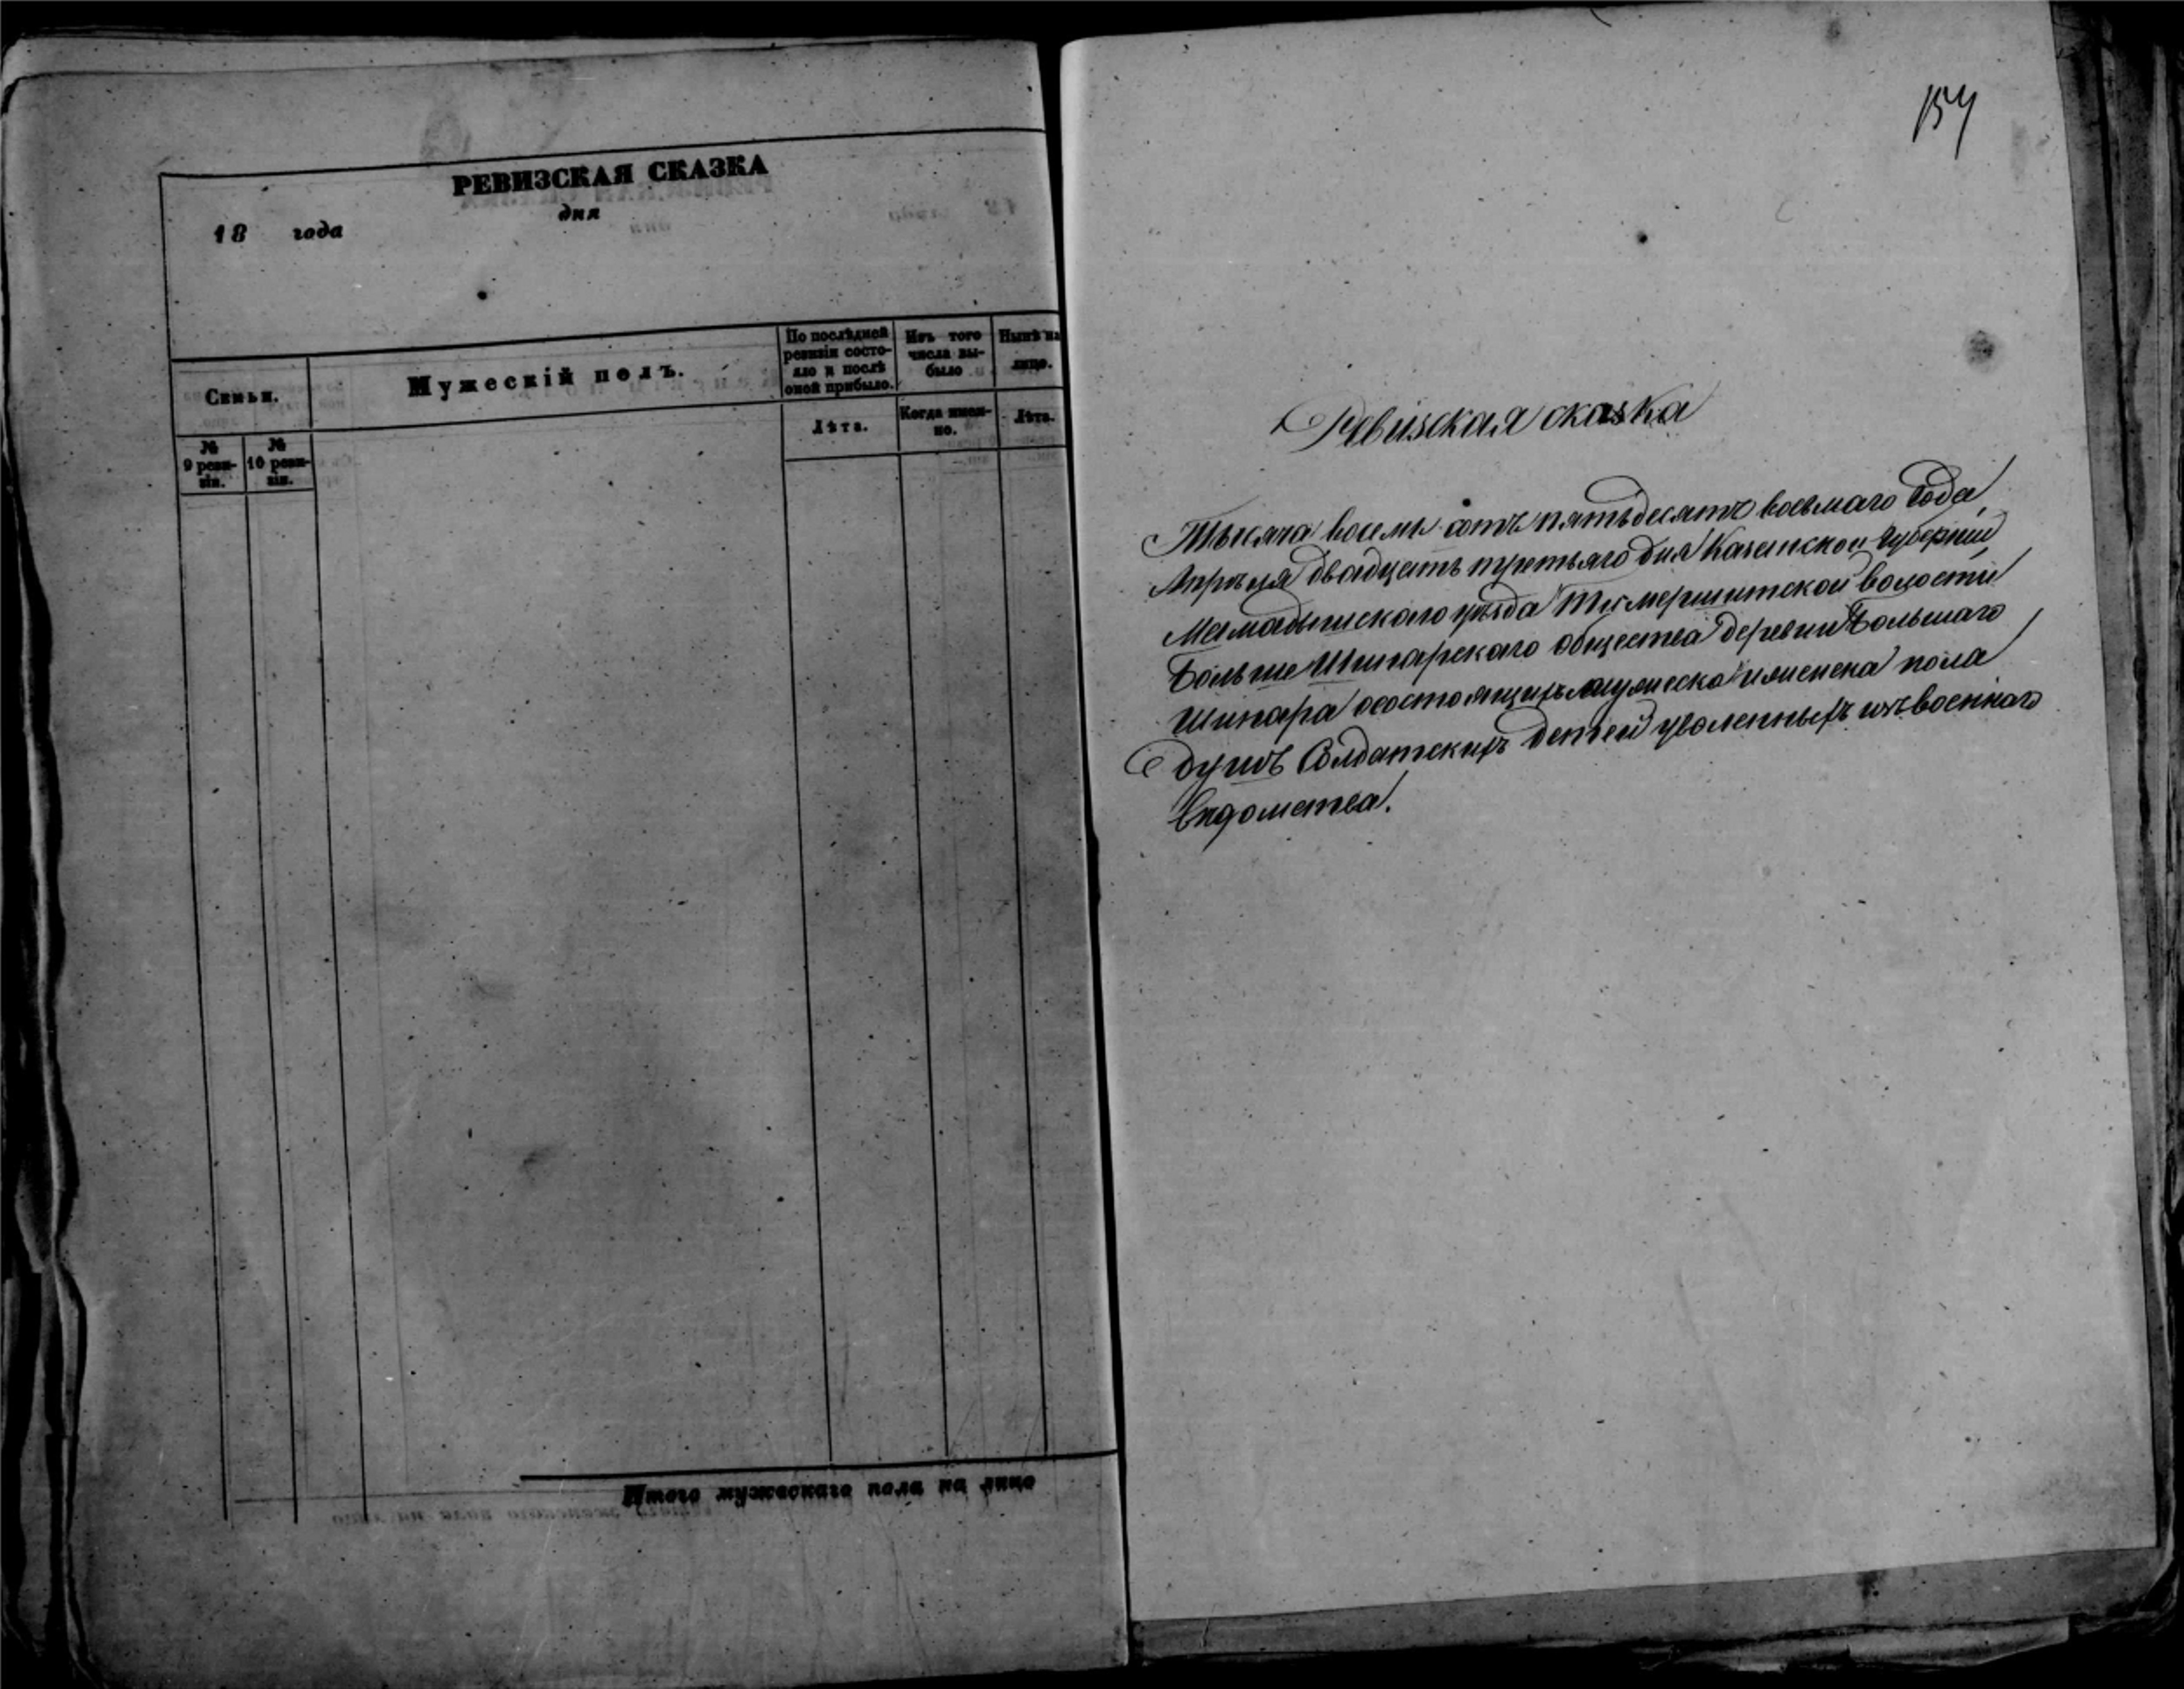 РЕВИЗСКАЯ СКАЗКА
18 года дня
Семьи.
Мужескій полъ.
По послѣдней ревизіи состояло и послѣ оной прибыло.
Изъ того числа выбыло
Нынѣ на лицо.
№ 9 ревизіи.
№ 10 ревизіи.
Лѣта.
Когда именно.
Лѣта.
Итого мужескаго пола на лицо
Ревизская сказка
Тысяча восемь сотъ пятьдесятъ восьмаго Года,
Апрѣля двадцать третьяго дня Казанской Губерніи
Мамадышскаго уѣзда волости
Больше Шинарскаго общества деревни Большаго
Шинара осостоящихъ мужеска и женска пола
душъ Солдатскихъ детей уволенныхъ изъ военнаго
Вѣдомства.